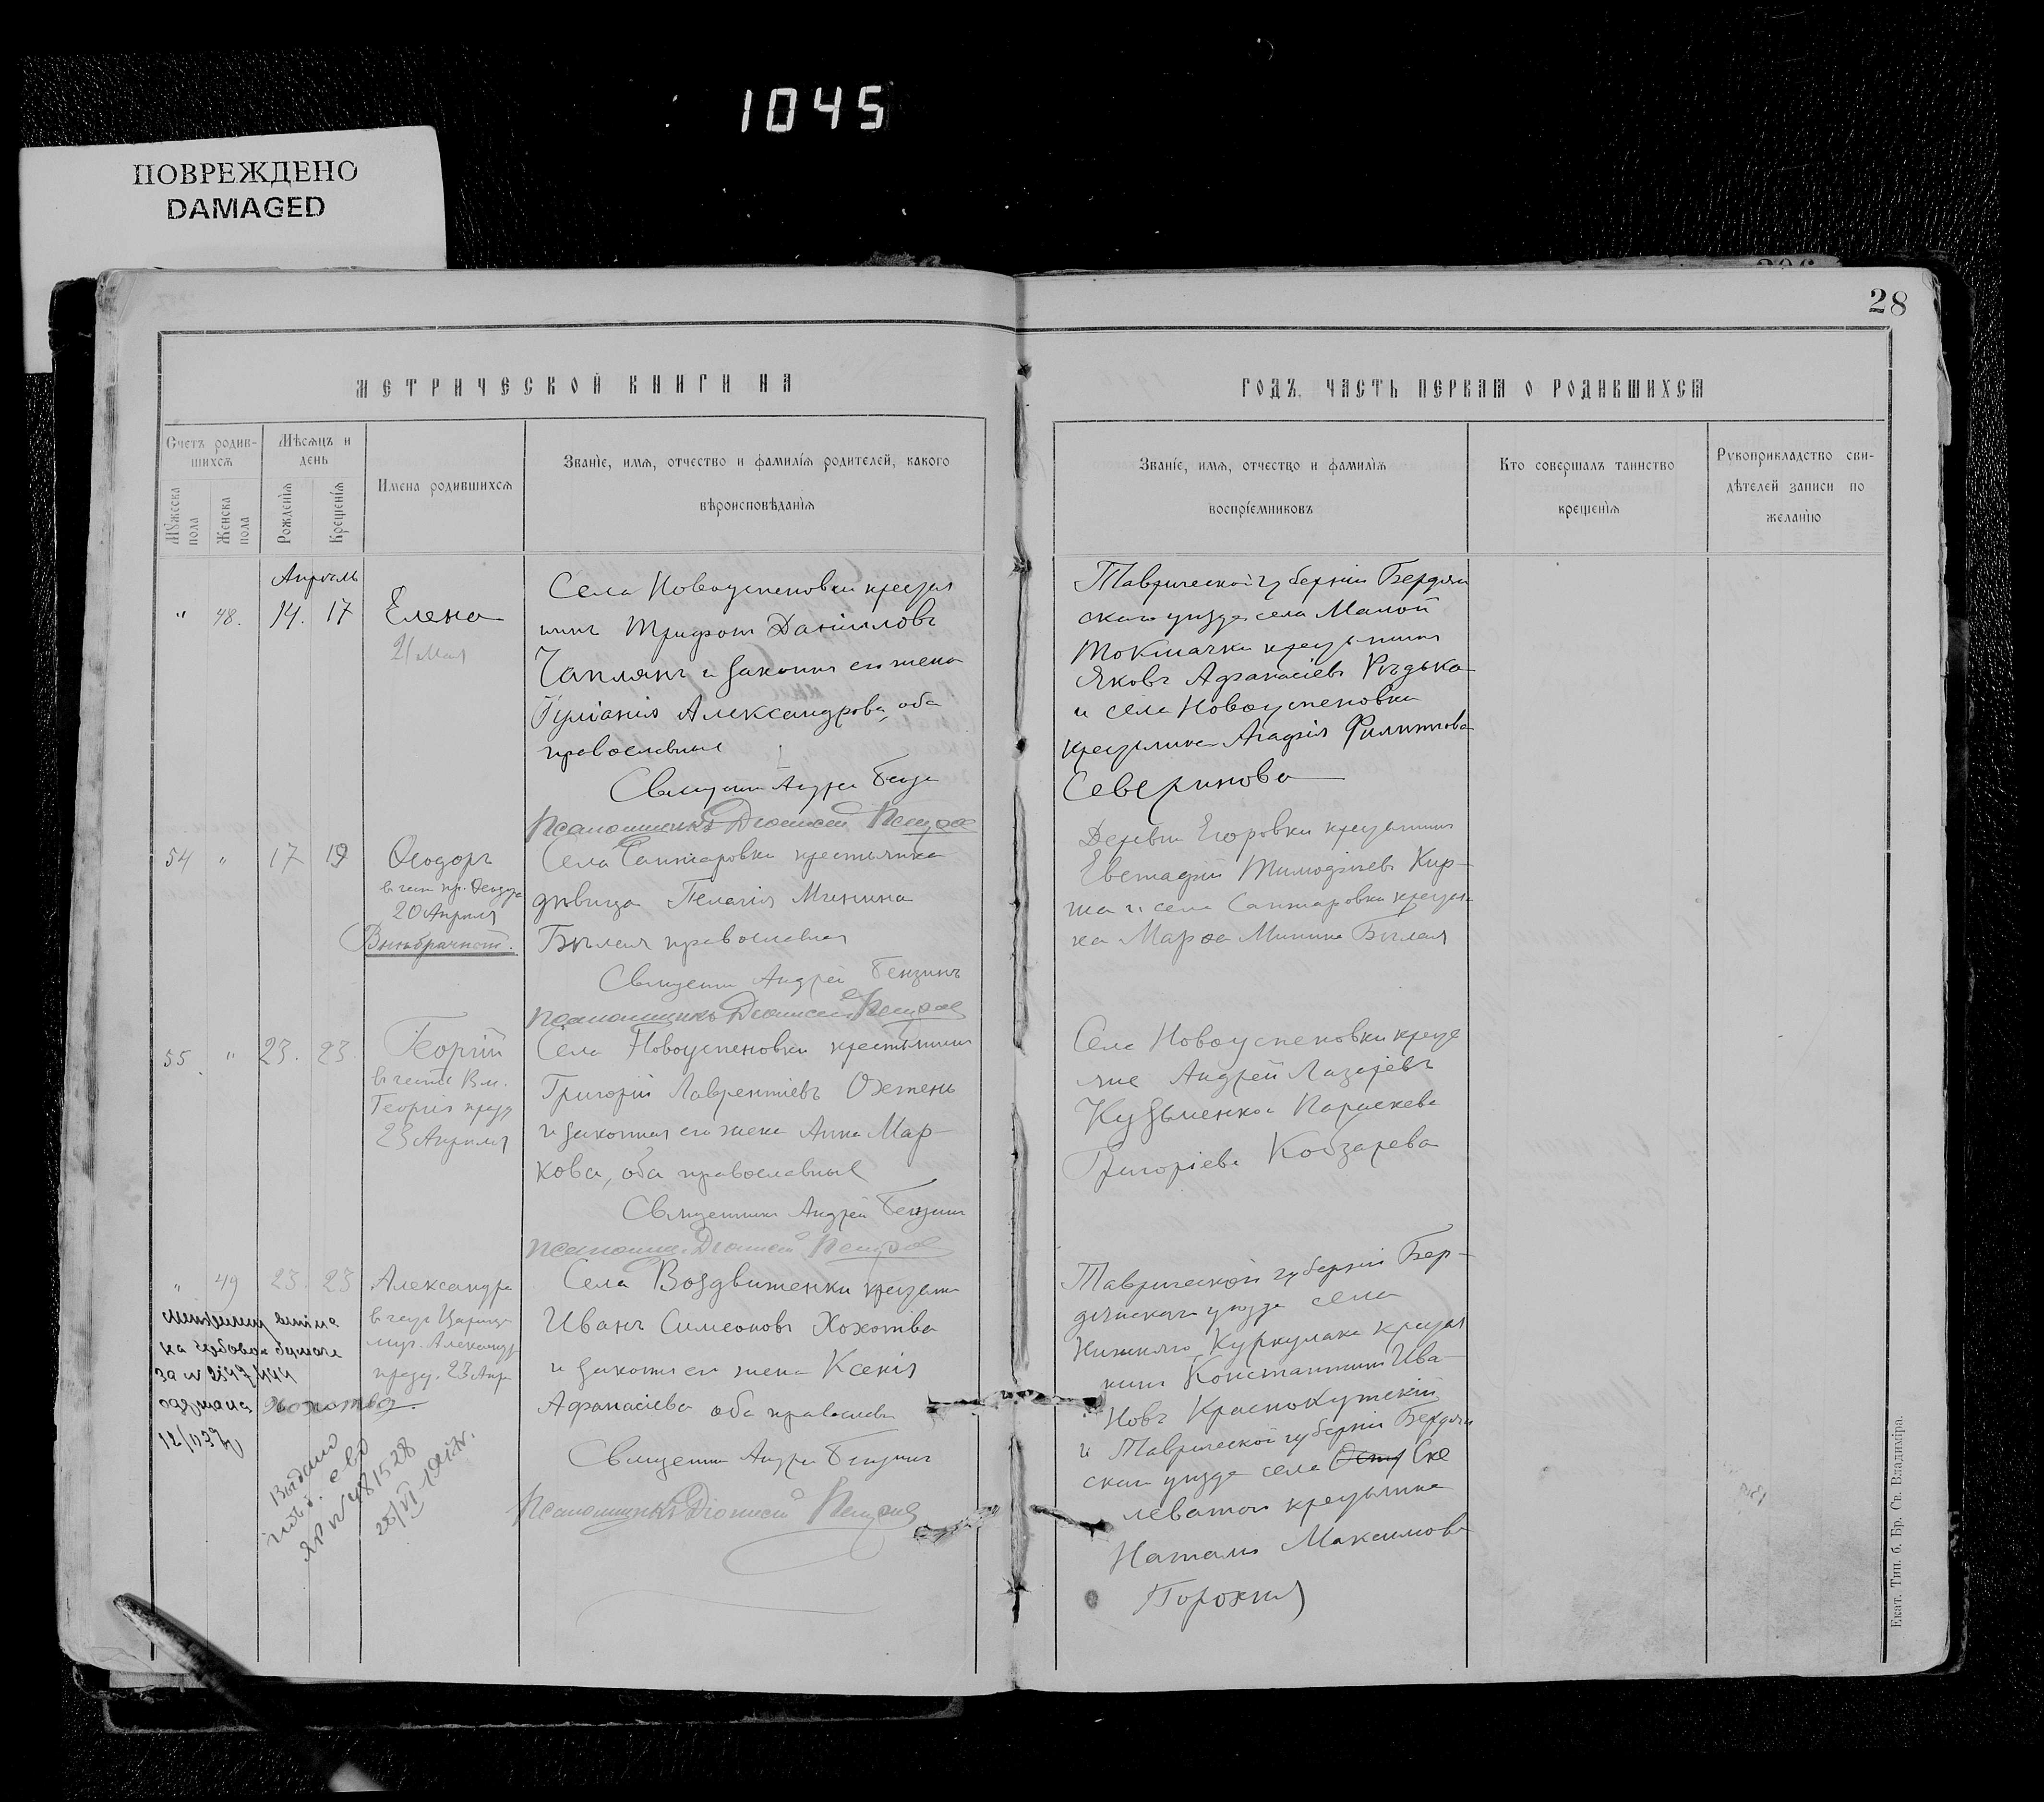 1045
ПОВРЕЖДЕНО
DAMAGED
28
МЕТРИЧЕСКОЙ КНИГИ НА
ГОДЪ, ЧАСТЬ ПЕРВАЯ О РОДИВШИХСЯ
Счетъ родив-
шихся
Мужеска
пола
Женска
пола
Мѣсяцъ и
день
Рожденія
Крещенія
Имена родившихся
Званіе, имя, отчество и фамилія родителей, какого
вѣроисповѣданія
Званіе, имя, отчество и фамилія
воспріемниковъ
Кто совершалъ таинство
крещенія
Рукоприкладство сви-
дѣтелей записи по
желанію
Апрѣль
" 48. 14. 17 Елена
21 Мая
Села Новоуспеновки крестья
нинъ Трифонъ Даніиловъ
Чаплянъ и законная его жена
Іуліанія Александрова, оба
православные
Священникъ Андрей
Псаломщикъ Діонисій
Таврической губерніи Бердян
скаго уѣзда села Малой
Токмачки крестьянинъ
Яковъ Афанасіевъ Рѣдька
и села Новоуспеновки
крестьянка Агафія Филиппова
Северинова
54 " 17 19 Ѳеодоръ
20 Апрѣля
Внѣбрачный.
Села крестьянка
дѣвица Пелагія Минина
Бѣлая православная
Священникъ Андрей
Псаломщикъ Діонисій
Деревни Егоровки крестьянинъ
Евстафій Тимофѣевъ Кир-
на Марѳа Минина Бѣлая
55. " 23. 23 Георгій
въ честь Вм.
Георгія празд
23 Апрѣля
Села Новоуспеновки крестьянинъ
Григорій Лаврентіевъ Охтень
и законная его жена Анна Мар-
кова, оба православные
Священникъ Андрей
Псаломщ. Діонисій
Села Новоуспеновки кресть
яне Андрей Лазаревъ
Кузьменко и Параскева
Григоріева Кобзарева
" 49 23. 23 Александра
въ честь Цариц
муч. Александр
празд. 23 Апр
Села Воздвиженки крестьян
Иванъ Симеоновъ Хохотва
и законная его жена Ксенія
Афанасіева оба православн
Священникъ Андрей
Псаломщикъ Діонисій
Таврической губерніи Бер-
дянскаго уѣзда села
Нижняго Куркулака крестья
нинъ Константинъ Ива-
новъ Краснокутскій
и Таврической губерніи Бердян
скаго уѣзда села Ске
леватой крестьянка
Наталія Максимова
Горохня
Хохотва.
Выдано
481528
28/VI
Екат. Тип. б. Бр. Св. Владиміра.